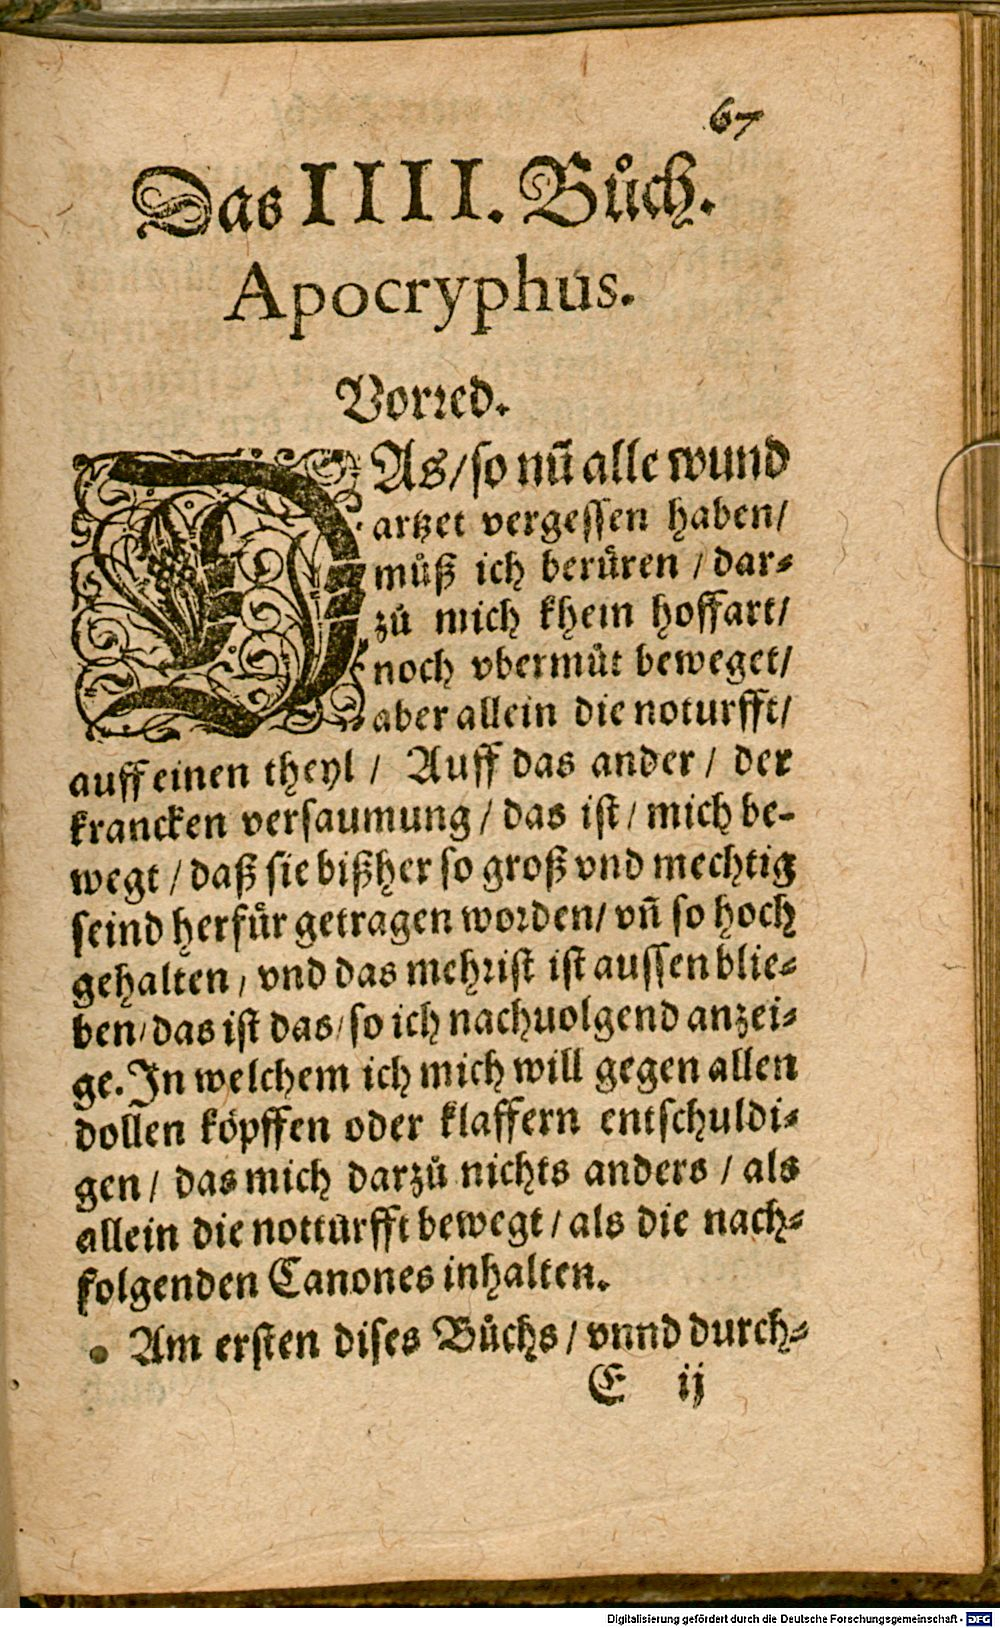 67
Das IIII. Bůch.
Apocryphus.
Vorred.
DAs/ so nũ alle wund
artzet vergessen haben/
můß ich berüren / dar⸗
zů mich khein hoffart/
noch vbermůt beweget/
aber allein die noturfft/
auff einen theyl / Auff das ander / der
krancken versaumung / das ist / mich be-
wegt / daß sie bißher so groß vnd mechtig
seind herfür getragen worden/ vñ so hoch
gehalten, vnd das mehrist ist aussen blie⸗
ben/ das ist das/ so ich nachuolgend anzei⸗
ge. In welchem ich mich will gegen allen
dollen köpffen oder klaffern entschuldi⸗
gen / das mich darzů nichts anders / als
allein die notturfft bewegt / als die nach⸗
folgenden Canones inhalten.
Am ersten dises Bůchs / vnnd durch⸗
E ij
Digitalisierung gefördert durch die Deutsche Forschungsgemeinschaft - DFG